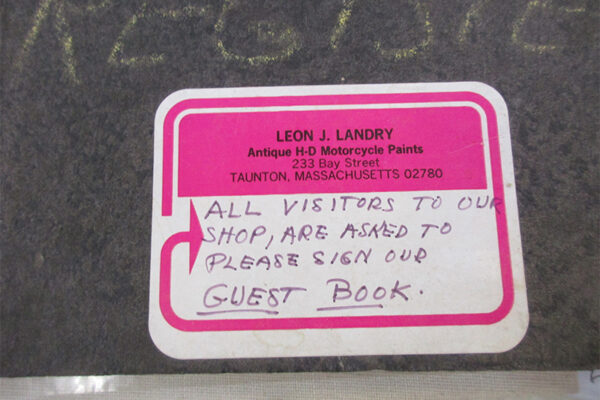 REGISTE
LEON J. LANDRY
Antique H-D Motorcycle Paints
233 Bay Street
TAUNTON, MASSACHUSETTS 02780
ALL VISITORS TO OUR
SHOP, ARE ASKED TO
PLEASE SIGN OUR
GUEST BOOK.